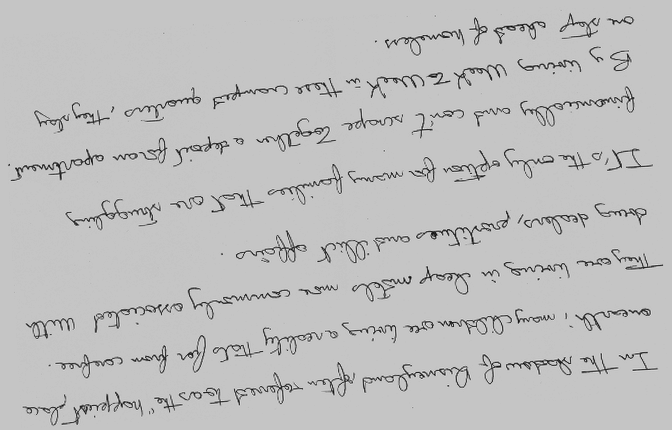 In the shadow of Disneyland, often referred to as the "happiest place
on earth", many children are living a reality thats far from carefree.
They are living in cheap motels more commonly associated with
drug dealers, prostitues and illicit affairs.
It's the only option for many families that are struggling
financially and can't scrape together a deposit for an apartment.
By living week to week in these cramped quarters, they stay
on step ahead of homeless.